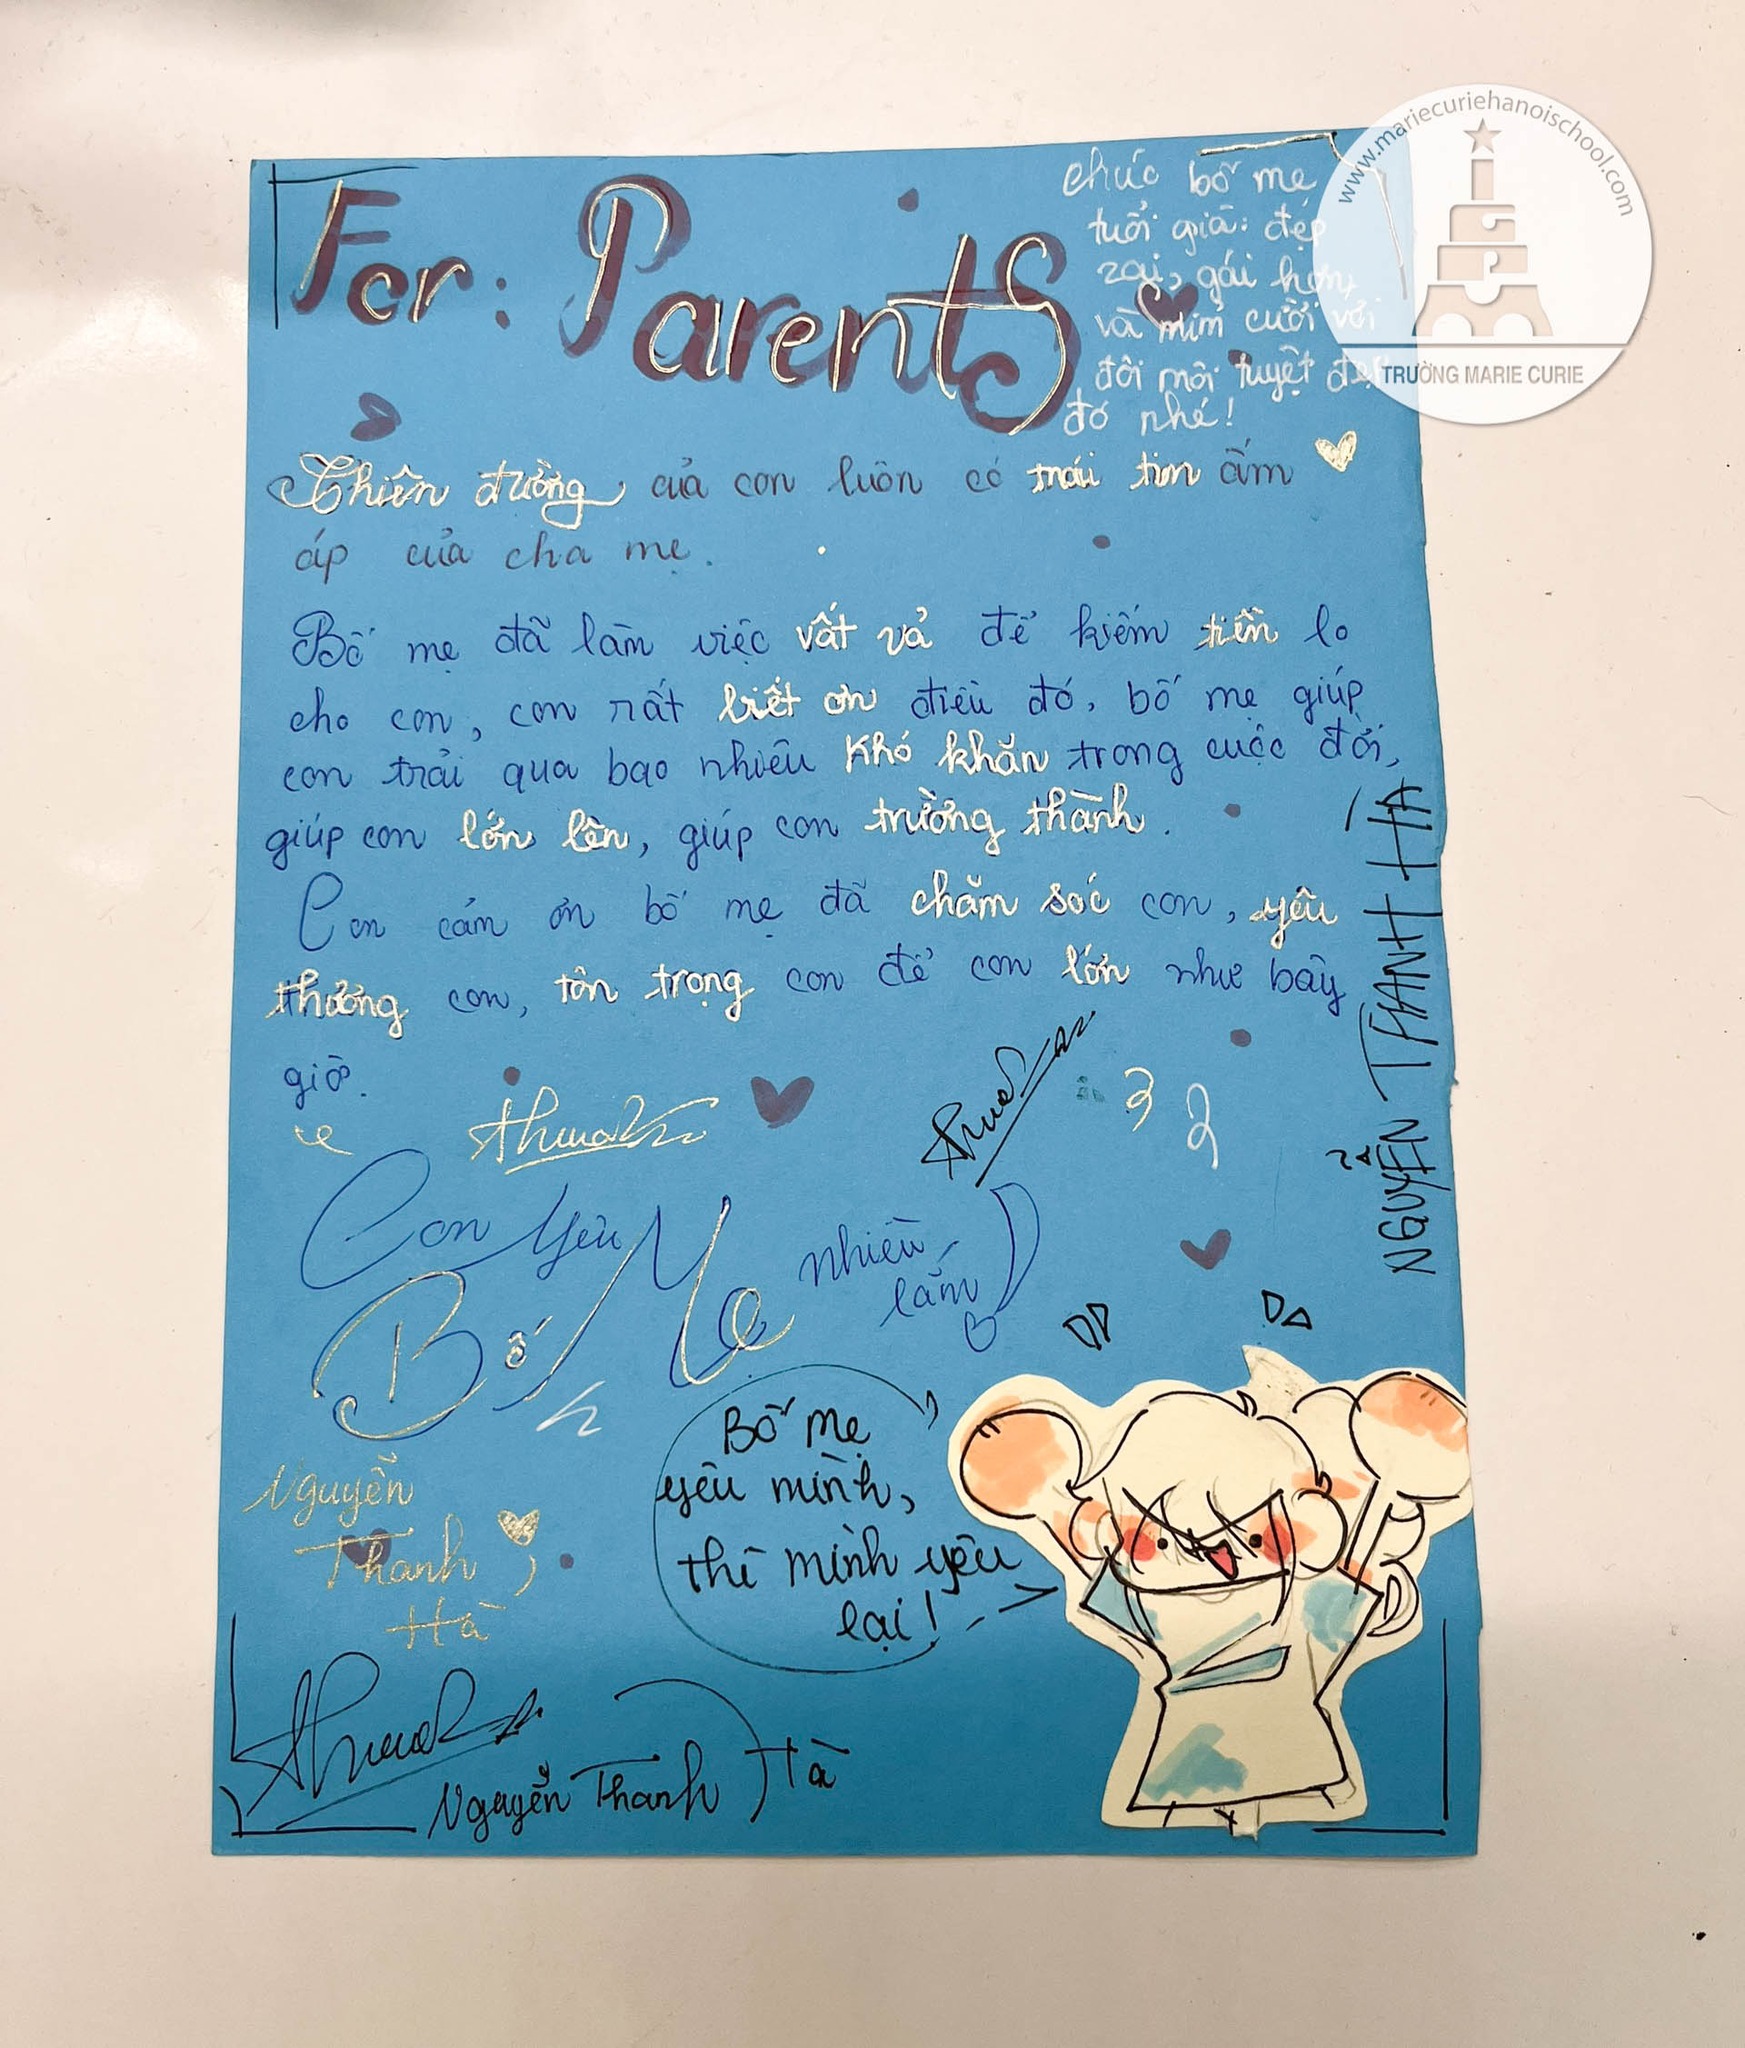 For: Parents
chúc bố mẹ
tuổi già: đẹp
zai, gái hơn,
và mỉm cười với
đôi môi tuyệt đẹp
đó nhé!
www.mariecuriehanoischool.com
TRƯỜNG MARIE CURIE
Thiên đường của con luôn có trái tim ấm
áp của cha mẹ.
Bố mẹ đã làm việc vất vả để kiếm tiền lo
cho con, con rất biết ơn điều đó, bố mẹ giúp
con trải qua bao nhiêu khó khăn trong cuộc đời,
giúp con lớn lên, giúp con trưởng thành.
Con cảm ơn bố mẹ đã chăm sóc con, yêu
thương con, tôn trọng con để con lớn như bây
giờ.
NGUYỄN THANH HÀ
Con yêu
Bố Mẹ nhiều
lắm
Bố mẹ
yêu mình,
thì mình yêu
lại!
Nguyễn
Thanh
Hà
Nguyễn Thanh Hà